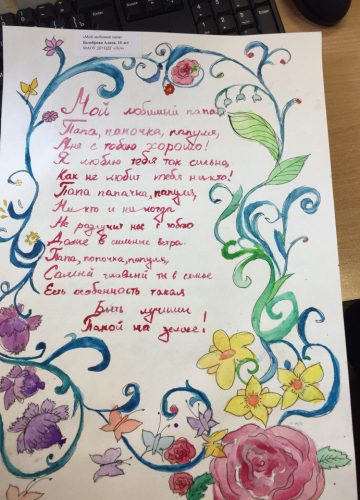 «Мой любимый папа»
Мой любимый папа.
Папа, папочка, папуля,
Мне с тобою хорошо!
Я люблю тебя так сильно,
Как не любит тебя никто!
Папа папачка, папуля,
Ни кто и ни когда
Не разлучит нас с тобою
Даже в сильные ветра.
Папа, папочка, папуля,
Самый главный ты в семье
Есть особенность такая
Быть лучшим
Папой на земле!